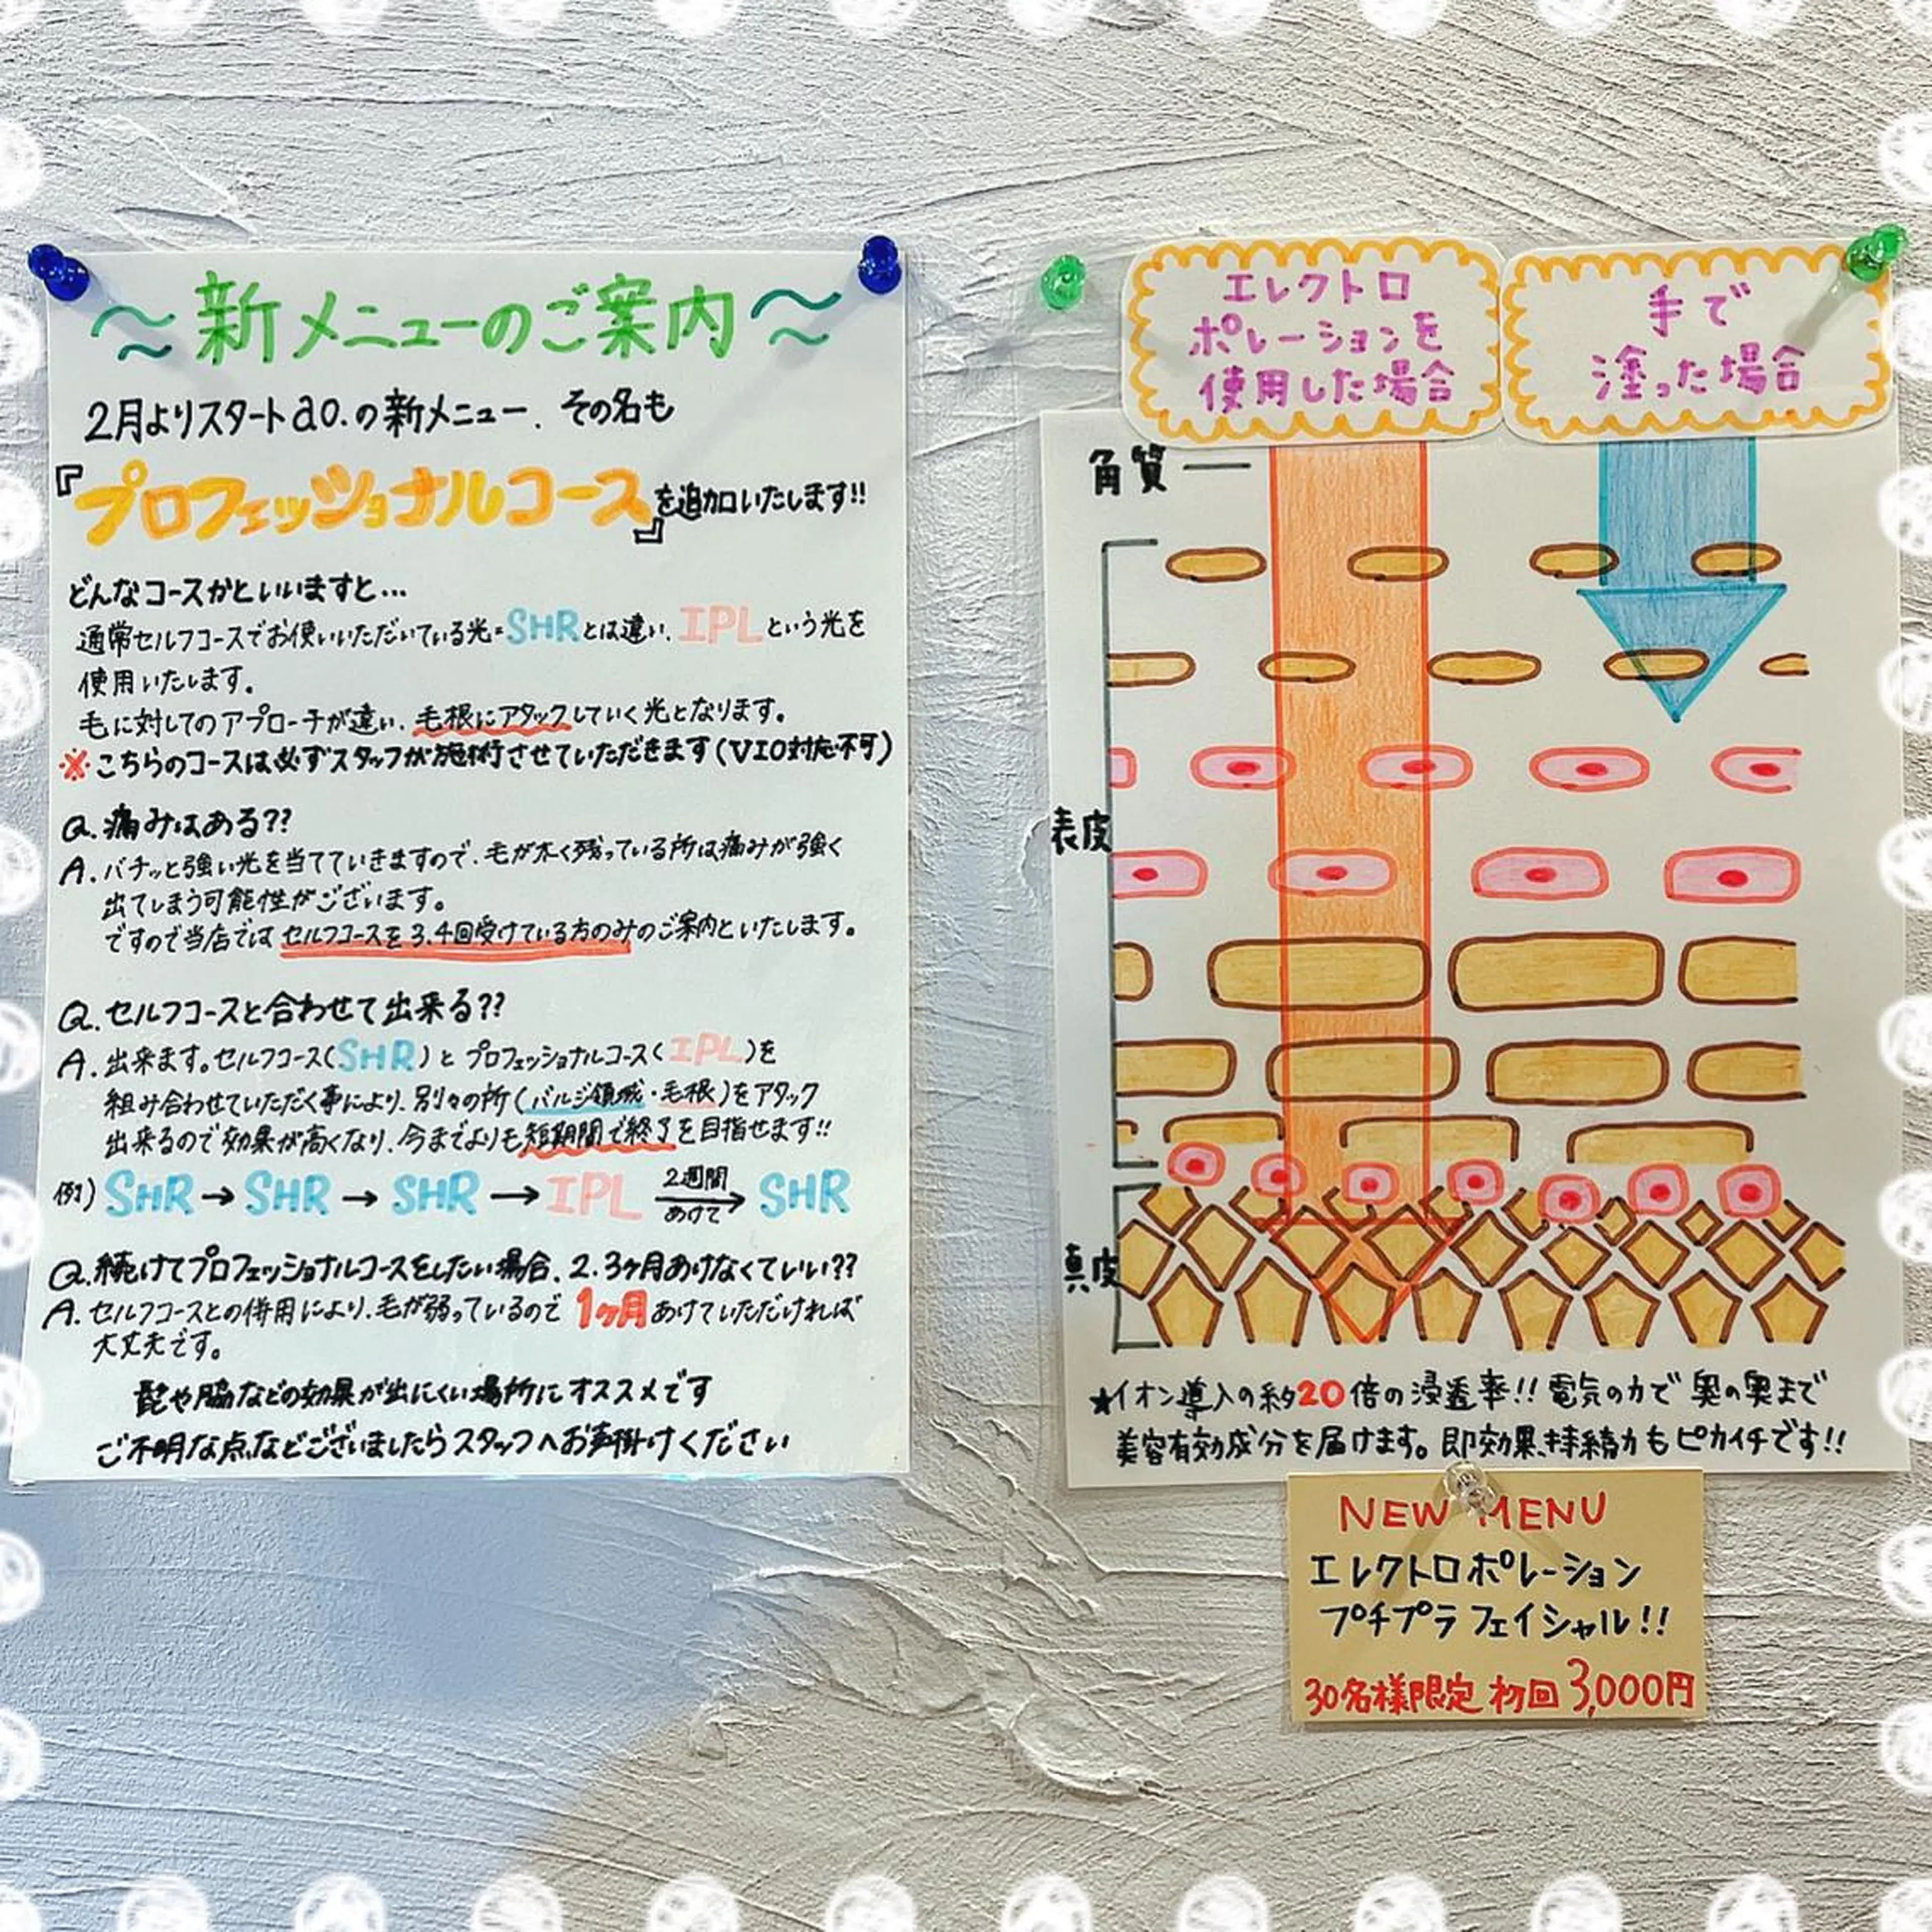 ～新メニューのご案内～
2月よりスタートao.の新メニュー、その名も
『プロフェッショナルコース』を追加いたします!!
どんなコースかといいますと…
通常セルフコースでお使いいただいている光=SHRとは違い、IPLという光を
使用いたします。
毛に対してのアプローチが違い、毛根にアタックしていく光となります。
※こちらのコースは必ずスタッフが施術させていただきます(VIO対応不可)
Q.痛みはある??
A.バチッと強い光を当てていきますので、毛が太く残っている所は痛みが強く
出てしまう可能性がございます。
ですので当店ではセルフコースを3.4回受けている方のみのご案内といたします。
Q.セルフコースと合わせて出来る??
A.出来ます。セルフコース(SHR)とプロフェッショナルコース(IPL)を
組み合わせていただく事により、別々の所(バルジ領域・毛根)をアタック
出来るので効果が高くなり、今までよりも短期間で終了を目指せます!!
例)SHR→SHR→SHR→IPL 2週間あけて→SHR
Q.続けてプロフェッショナルコースをしたい場合、2.3ヶ月あけなくていい??
A.セルフコースとの併用により、毛が弱っているので1ヶ月あけていただければ
大丈夫です。
髭や脇などの効果が出にくい場所にオススメです
ご不明な点などございましたらスタッフへお声掛けください
エレクトロ
ポレーションを
使用した場合
手で
塗った場合
角質
表皮
真皮
★イオン導入の約20倍の浸透率!!電気の力で奥の奥まで
美容有効成分を届けます。即効果、持続力もピカイチです!!
NEW MENU
エレクトロポレーション
プチプラフェイシャル!!
30名様限定 初回3,000円